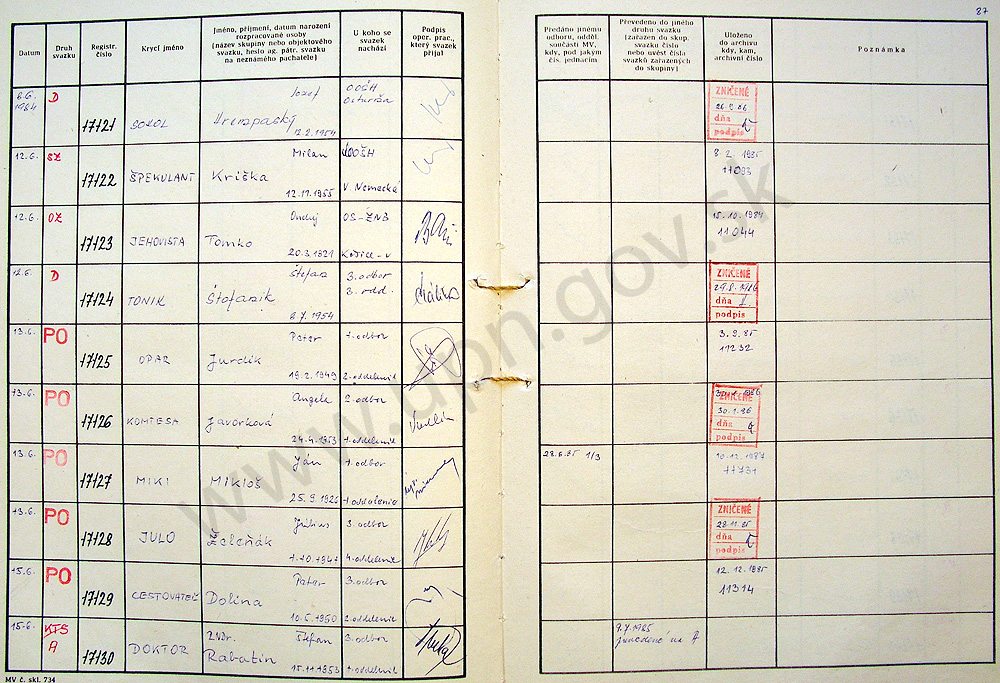 87
Datum
Druh
svazku
Registr.
číslo
Krycí jméno
Jméno, příjmení, datum narození
rozpracované osoby
(název skupiny nebo objektového
svazku, heslo ag. pátr. svazku
na neznámého pachatele)
U koho se
svazek
nachází
Podpis
oper. prac.,
který svazek
přijal
Předáno jinému
odboru, odděl.
součásti MV,
kdy, pod jakým
čís. jednacím
Převedeno do jiného
druhu svazku
(zařazen do skup.
svazku číslo
nebo uvést čísla
svazků zařazených
do skupiny)
Uloženo
do archivu
kdy, kam,
archivní číslo
Poznámka
8.6.
1984
D
17121
SOKOL
Jozef
12.2.1954
OOŠH
ZNIČENÉ
26.9.86
dňa
podpis
12.6.
SZ
17122
ŠPEKULANT
Milan
Kriška
12.11.1955
OOŠH
V. Nemecká
8 2. 1985
11093
12.6.
OZ
17123
JEHOVISTA
Ondrej
Tomko
20.3.1921
OS-ZNB
Košice-v
15.10.1984
11044
12.6.
D
17124
TONIK
Štefan
Štofanik
8.7.1954
3.odbor
3.odd.
ZNIČENÉ
dňa
podpis
13.6.
PO
17125
OPAR
Peter
Jurdík
19.2.1949
1.odbor
2.oddelenie
3.9.85
11232
13.6.
PO
17126
KOMTESA
Angela
Javorková
24.4.1953
2.odbor
1.oddelenie
ZNIČENÉ
30.1.86
dňa
podpis
13.6.
PO
17127
MIKI
Ján
Mikloš
25.9.1926
1.odbor
1.oddelenie
28.6.85 1/3
10.12.1987
11731
13.6.
PO
17128
JULO
Július
Zeleňák
3.odbor
4.oddelenie
ZNIČENÉ
28.11.85
dňa
podpis
15.6.
PO
17129
CESTOVATEĽ
Peter
Dolina
10.5.1950
3.odbor
2.oddelenie
12.12.1985
11314
15.6.
KTS
A
17130
DOKTOR
ZVDr. Štefan
Rabatin
15.11.1953
3.odbor
1.oddelenie
9.7.1985
MV č. skl. 734
www.upn.gov.sk